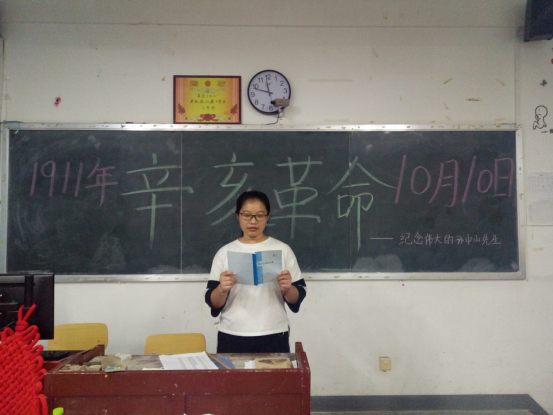 1911年 辛亥革命 10月10日
——纪念伟大的孙中山先生